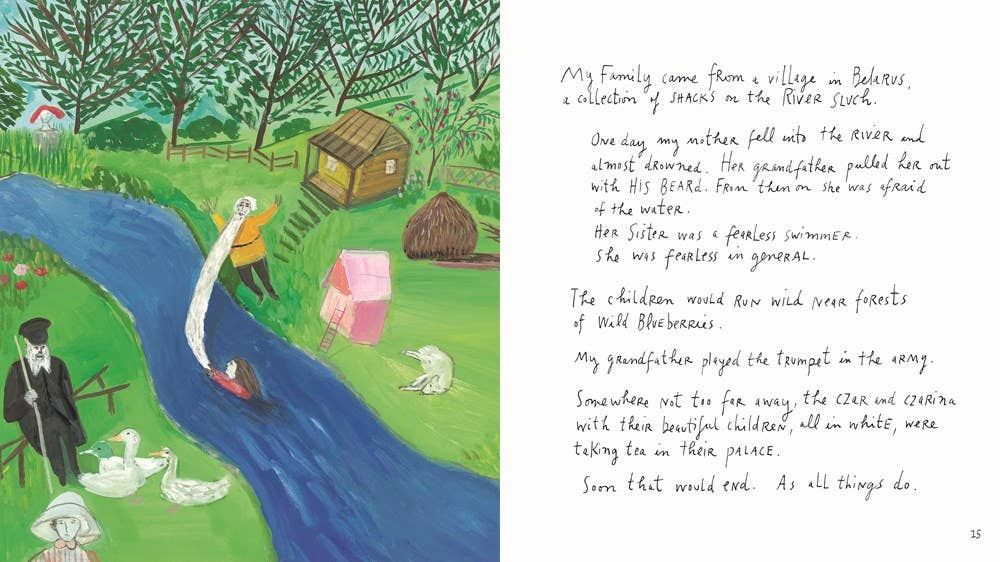 My Family came from a village in Belarus,
a collection of SHACKS on the RIVER SLUCH.
One day my mother fell into the RIVER and
almost drowned. Her grandfather pulled her out
with HIS BEARD. From then on she was afraid
of the water.
Her Sister was a fearless swimmer.
She was fearless in general.
The children would RUN wild near forests
of Wild Blueberries.
My grandfather played the trumpet in the army.
Somewhere not too far away, the CZAR and CZARINA
with their beautiful children, all in white, were
taking tea in their PALACE.
Soon that would end. As all things do.
15